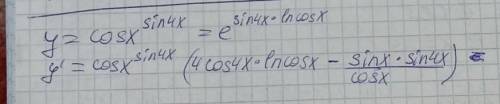 y = cosx^sin4x = e^sin4x·lncosx
y' = cosx^sin4x (4cos4x·lncosx − sinx·sin4x/cosx) =